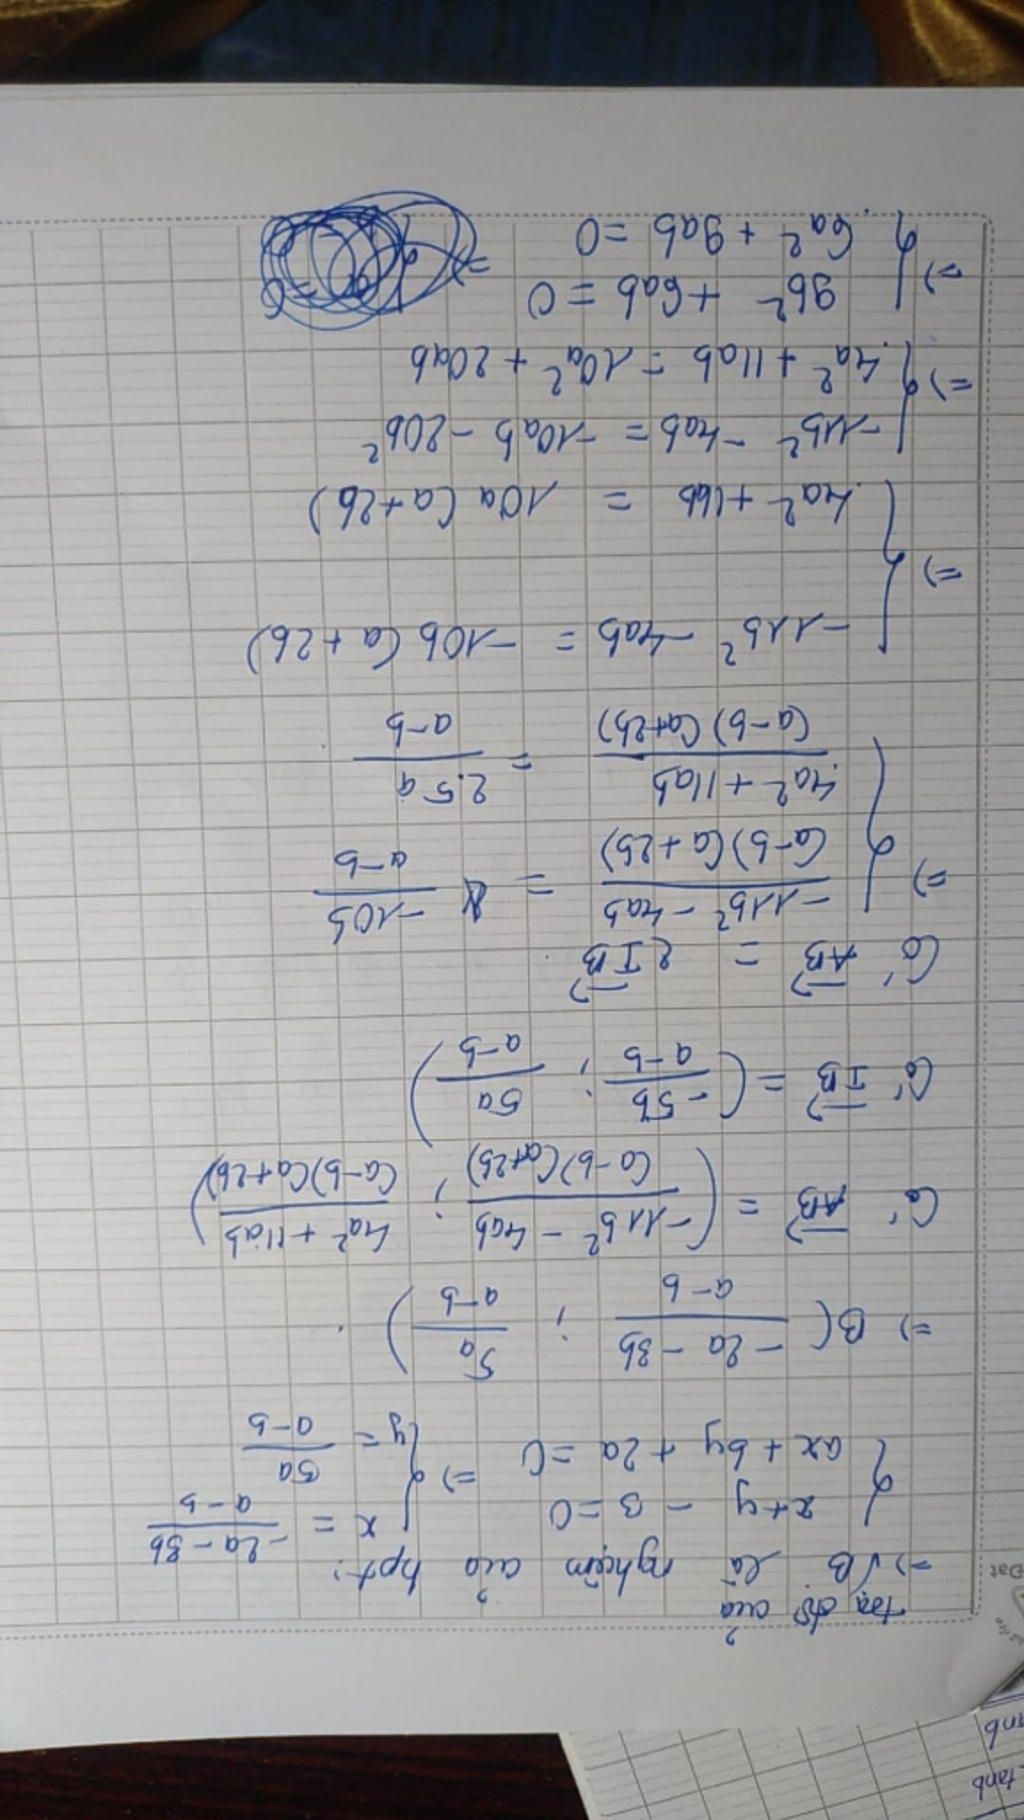 toạ độ của
=> B là nghiệm của hpt:
{ x+y - 3=0
ax + by + 2a = 0 => { x = (-2a-3b)/(a-b)
y = 5a/(a-b)
=> B( (-2a-3b)/(a-b) ; 5a/(a-b) ).
Có AB→ = ( (-11b² - 4ab)/((a-b)(a+2b)) ; (4a² + 11ab)/((a-b)(a+2b)) )
Có IB→ = ( -5b/(a-b) ; 5a/(a-b) )
Có AB→ = 2IB→.
=> { (-11b² - 4ab)/((a-b)(a+2b)) = -10b/(a-b)
(4a² + 11ab)/((a-b)(a+2b)) = 2.5a/(a-b)
=> { -11b² - 4ab = -10b(a+2b)
4a² + 11ab = 10a(a+2b)
=> { -11b² - 4ab = -10ab - 20b²
4a² + 11ab = 10a² + 20ab
=> { 9b² + 6ab = 0
6a² + 9ab = 0 =
Dat
anb
tanb